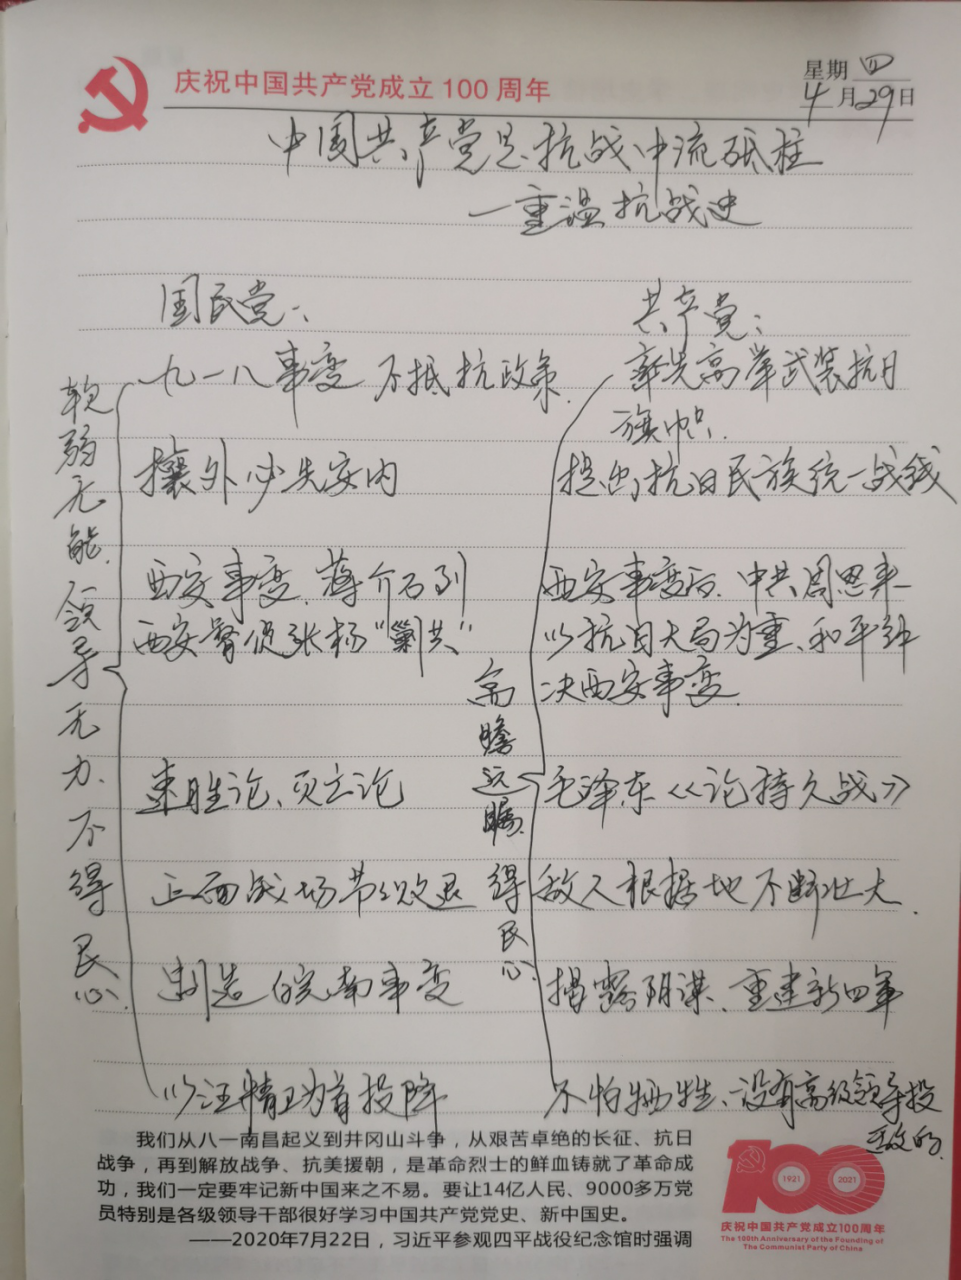 庆祝中国共产党成立100周年
星期 四
4月29日
中国共产党是抗战中流砥柱
—重温抗战史
国民党：
九一八事变 不抵抗政策.
攘外必先安内
西安事变.蒋介石到
西安督促张杨"剿共"
速胜论、灭亡论
正面战场节节败退
制造皖南事变
以汪精卫为首投降
软弱无能.领导无力、不得民心.
共产党：
率先高举武装抗日
旗帜.
提出抗日民族统一战线
西安事变后.中共周恩来
以抗日大局为重、和平解
决西安事变.
毛泽东《论持久战》
敌人根据地不断壮大.
揭露阴谋、重建新四军
不怕牺牲、没有高级领导投
敌的.
高瞻远瞩.得民心.
我们从八一南昌起义到井冈山斗争，从艰苦卓绝的长征、抗日
战争，再到解放战争、抗美援朝，是革命烈士的鲜血铸就了革命成
功，我们一定要牢记新中国来之不易。要让14亿人民、9000多万党
员特别是各级领导干部很好学习中国共产党党史、新中国史。
——2020年7月22日，习近平参观四平战役纪念馆时强调
100
1921
2021
庆祝中国共产党成立100周年
The 100th Anniversary of the Founding of
The Communist Party of China